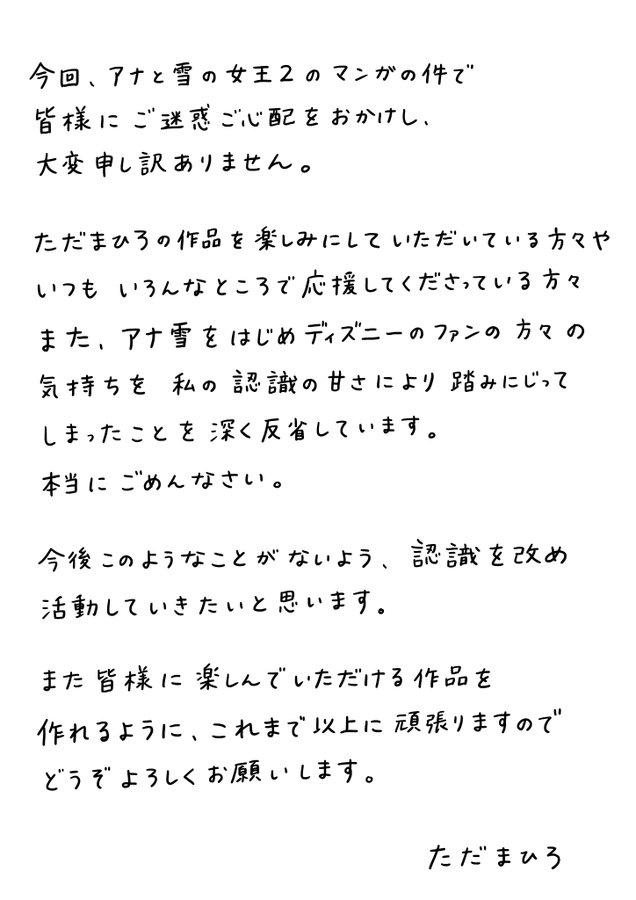 今回、アナと雪の女王2のマンガの件で
皆様にご迷惑ご心配をおかけし、
大変申し訳ありません。
ただまひろの作品を楽しみにしていただいている方々や
いつもいろんなところで応援してくださっている方々
また、アナ雪をはじめディズニーのファンの方々の
気持ちを私の認識の甘さにより踏みにじって
しまったことを深く反省しています。
本当にごめんなさい。
今後このようなことがないよう、認識を改め
活動していきたいと思います。
また皆様に楽しんでいただける作品を
作れるように、これまで以上に頑張りますので
どうぞよろしくお願いします。
ただまひろ